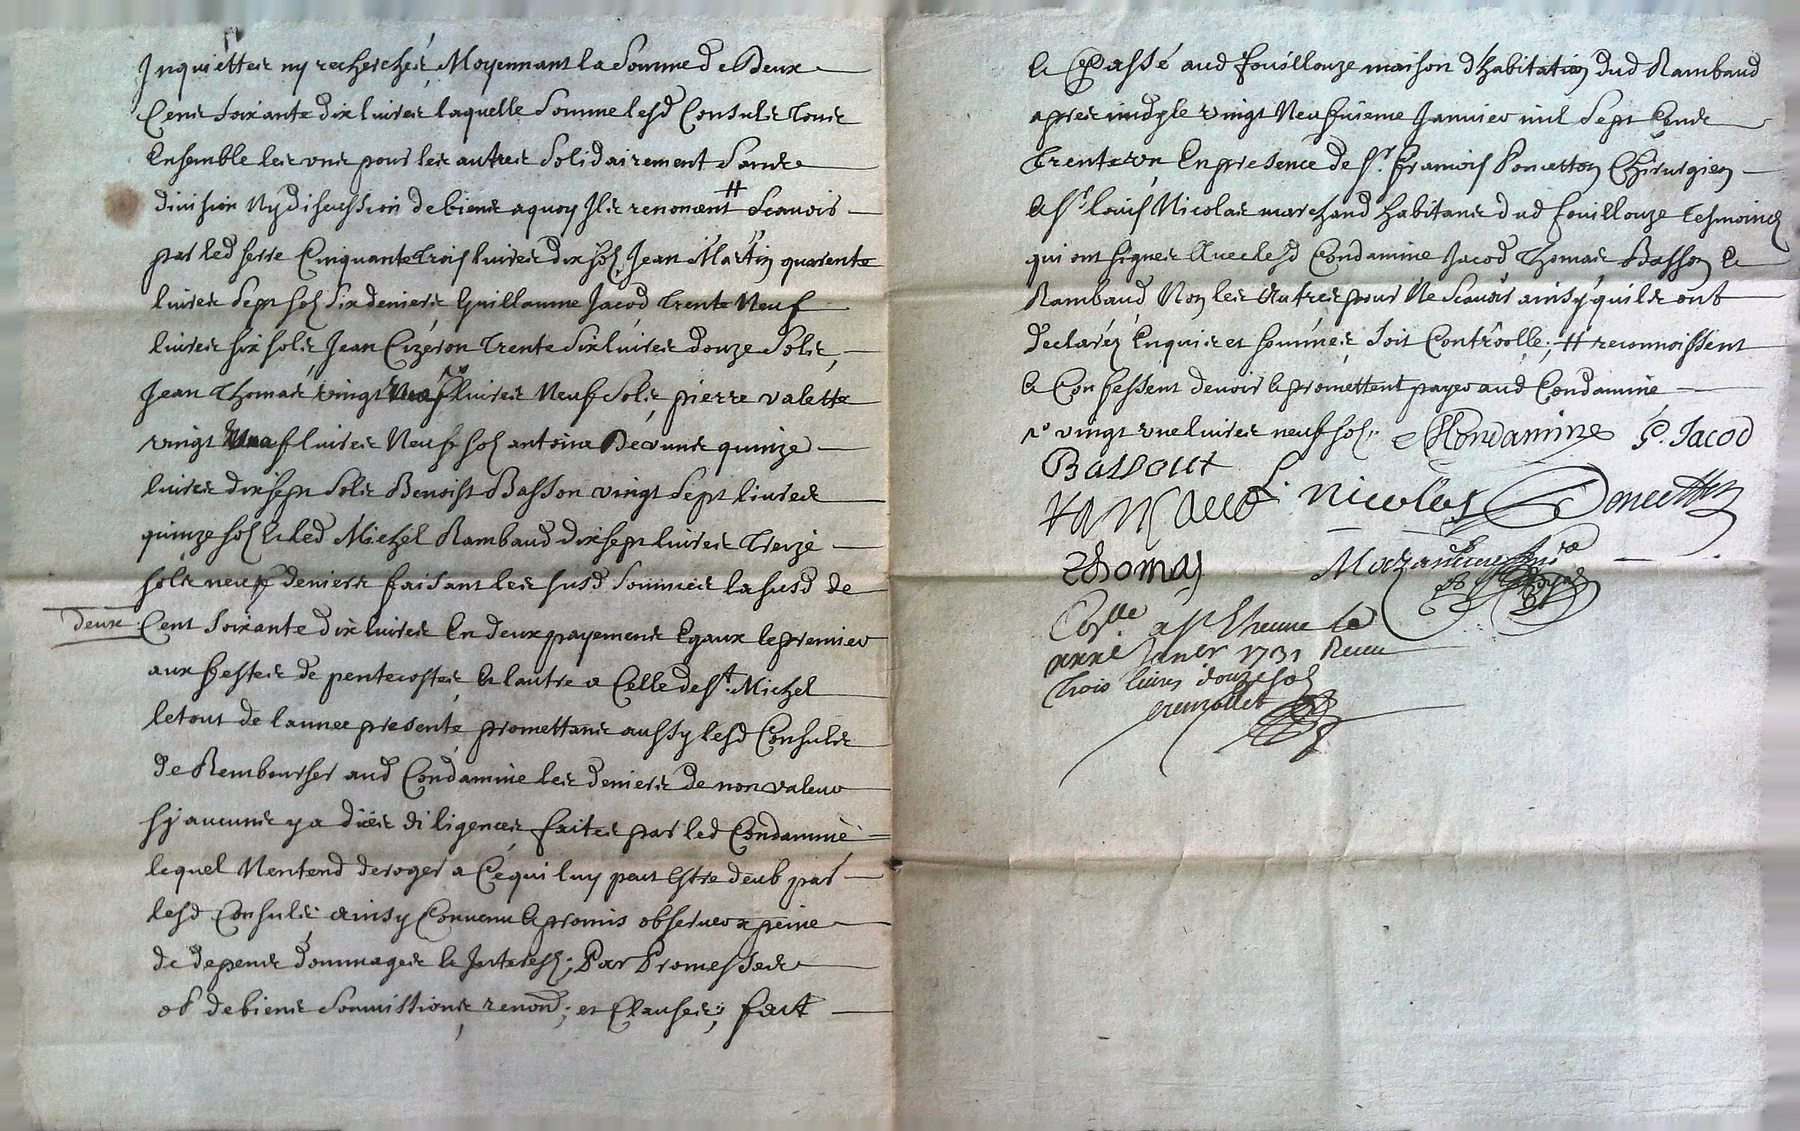 Inquietter ny rechercher, Moyennant la Somme de Deux
Cens soixante dix livres laquelle Somme lesd Consuls Tous
Ensemble les uns pour les autres Solidairement Sans
division Ny discussion de biens a quoy Ils renoncent # Scavoir
par led serre Cinquante trois livres dix sols, Jean Martin quarente
livres Sept sols six deniers Guillaume Jacod Trente Neuf
livres six sols Jean Cizeron Trente Six livres douze Sols,
Jean Thomas, vingt livres Neuf Sols, pierre valette
vingt livres Neuf sols antoine quinze
livres dix sept Sols Benoist Basson vingt Sept livres
quinze sols & led Michel Rambaud dix sept livres Treize
sols neuf deniers faisant les susd Sommes la susd de
deux Cent soixante dix livres En deux payements Egaux le premier
aux festes de pentecostes, & lautre a Celle de St. Michel
le tout de lannee presente, promettans aussy lesd Consuls
de Rembourser aud Condamine les deniers de non valeur
sy aucuns y a diligences faites par led Condamine
lequel Nentend deroger a Ce qui luy peut Estre deub par
lesd Consuls; ainsy Convenu & promis observer a peine
de depens dommages & Interests; Par Promesses
ob de biens Soumissions, renonc; et Clauses; fait
& Passé aud fouillouze maison d'habitation dud Rambaud
apres midy le vingt Neufvieme Janvier mil Sept Cens
Trente un, En presence de Sr. francois Poncetton Chirurgien
& Sr. louis Nicolas marchand habitans dud fouillouze Tesmoins
qui ont signes avec lesd Condamine Jacod Thomas Basson &
Rambaud Non les autres pour Ne Scavoir ainsy qu'ils ont
declarés, Enquis et sommes, soit Controolle; # reconnoissent
& Confessent devoir & promettent payer aud Condamine
vingt une livres neuf sols; Condamine G. Jacod
Basson
L. Nicolas Poncetton
Thomas
Colle a St Etienne le
Janer 1731 Receu
Trois livres douze sols